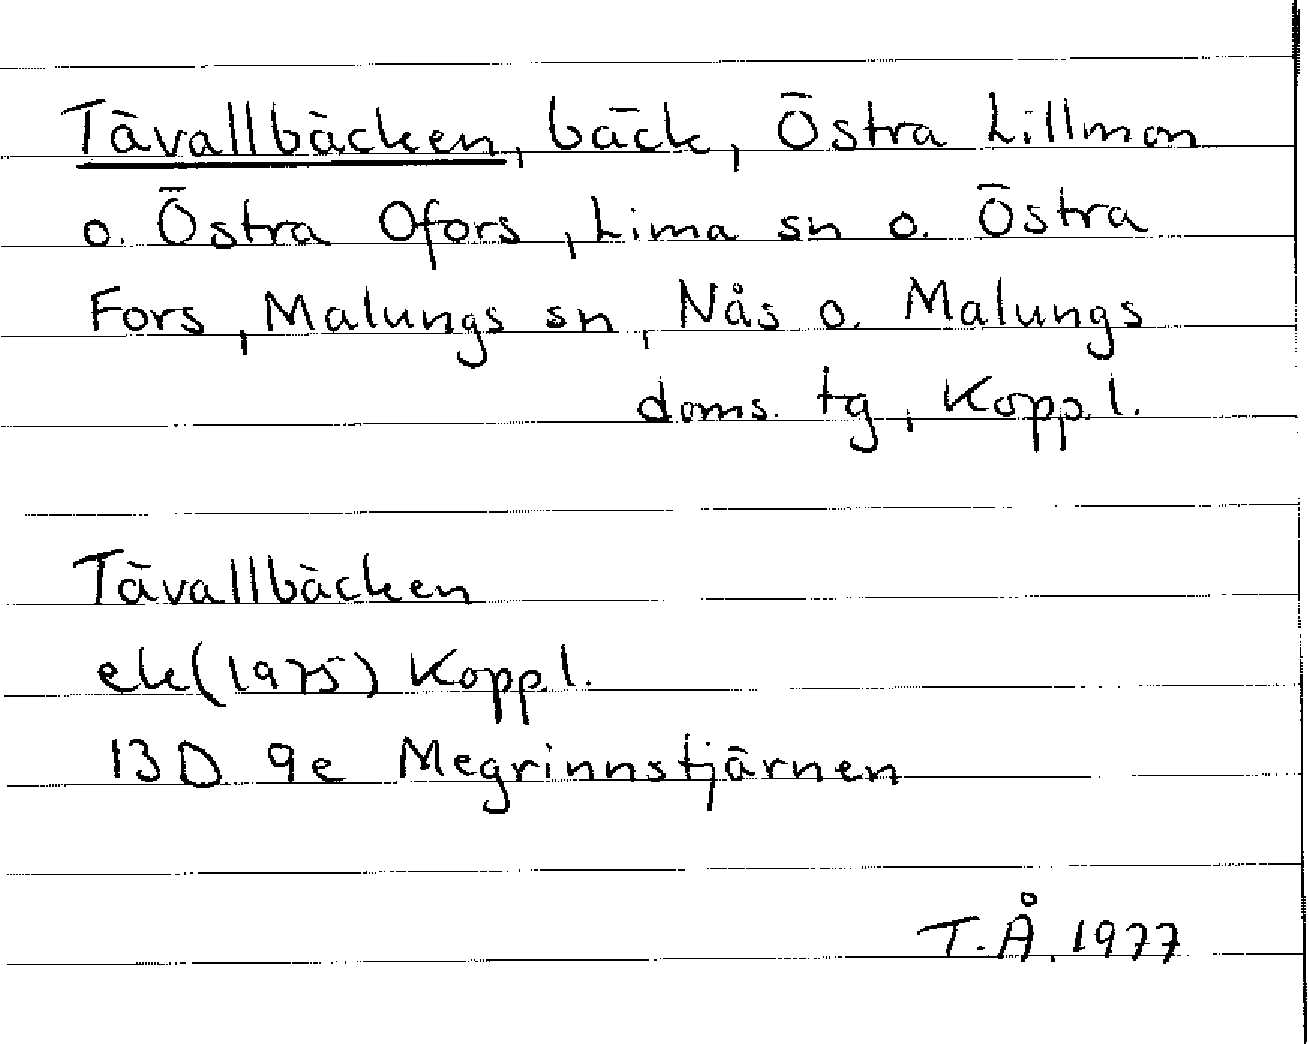 Tävallbäcken, bäck, Östra Lillmon
o. Östra Ofors, Lima sn o. Östra
Fors, Malungs sn, Nås o. Malungs
doms. tg, Kopp.l.
Tävallbäcken
ek(1975) Kopp.l.
13D 9e Megrinnstjärnen
T.Å. 1977